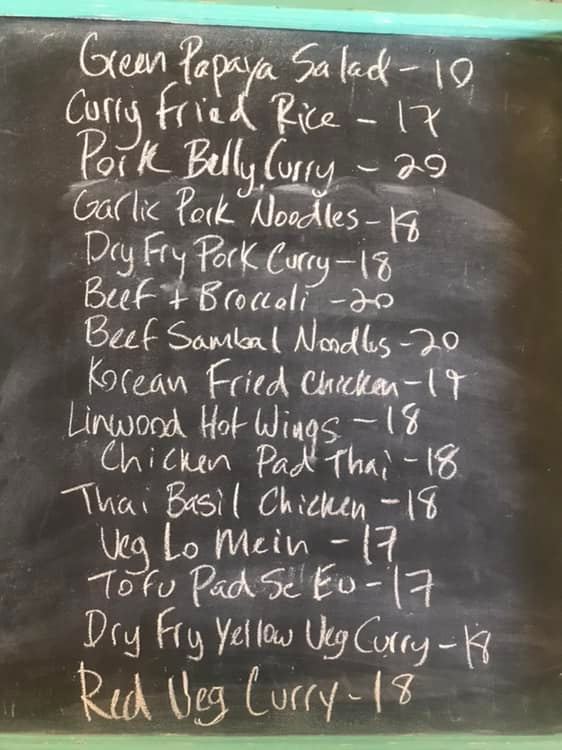 Green Papaya Salad - 10
Curry Fried Rice - 17
Pork Belly Curry - 20
Garlic Pork Noodles - 18
Dry Fry Pork Curry - 18
Beef + Broccoli - 20
Beef Sambal Noodles - 20
Korean Fried Chicken - 17
Linwood Hot Wings - 18
Chicken Pad Thai - 18
Thai Basil Chicken - 18
Veg Lo Mein - 17
Tofu Pad Se Eu - 17
Dry Fry Yellow Veg Curry - 18
Red Veg Curry - 18